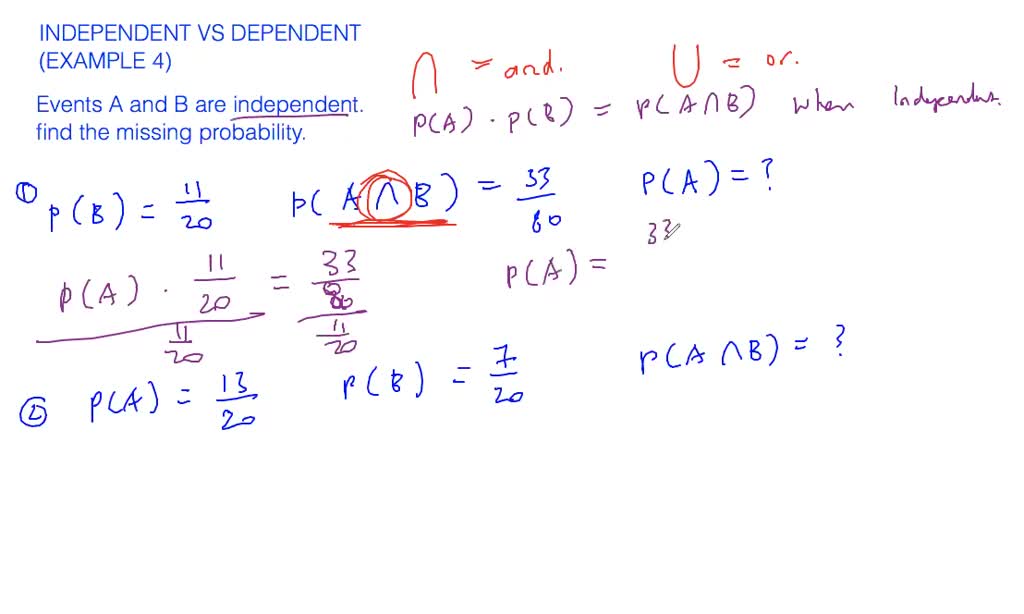 INDEPENDENT VS DEPENDENT
(EXAMPLE 4)
∩ = and. ∪ = or.
Events A and B are independent.
find the missing probability.
P(A) · P(B) = P(A∩B) when Independent.
① P(B) = 11/20 P(A∩B) = 33/80 P(A) = ?
P(A) · 11/20 = 33/80 P(A) = 33
11/20 11/20
② P(A) = 13/20 P(B) = 7/20 P(A∩B) = ?